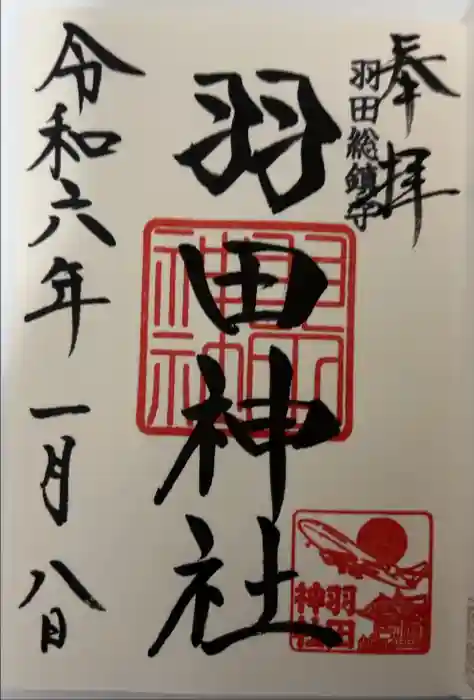 奉拝
羽田総鎮守
羽田神社
羽田神社
羽田
神社
令和六年一月八日